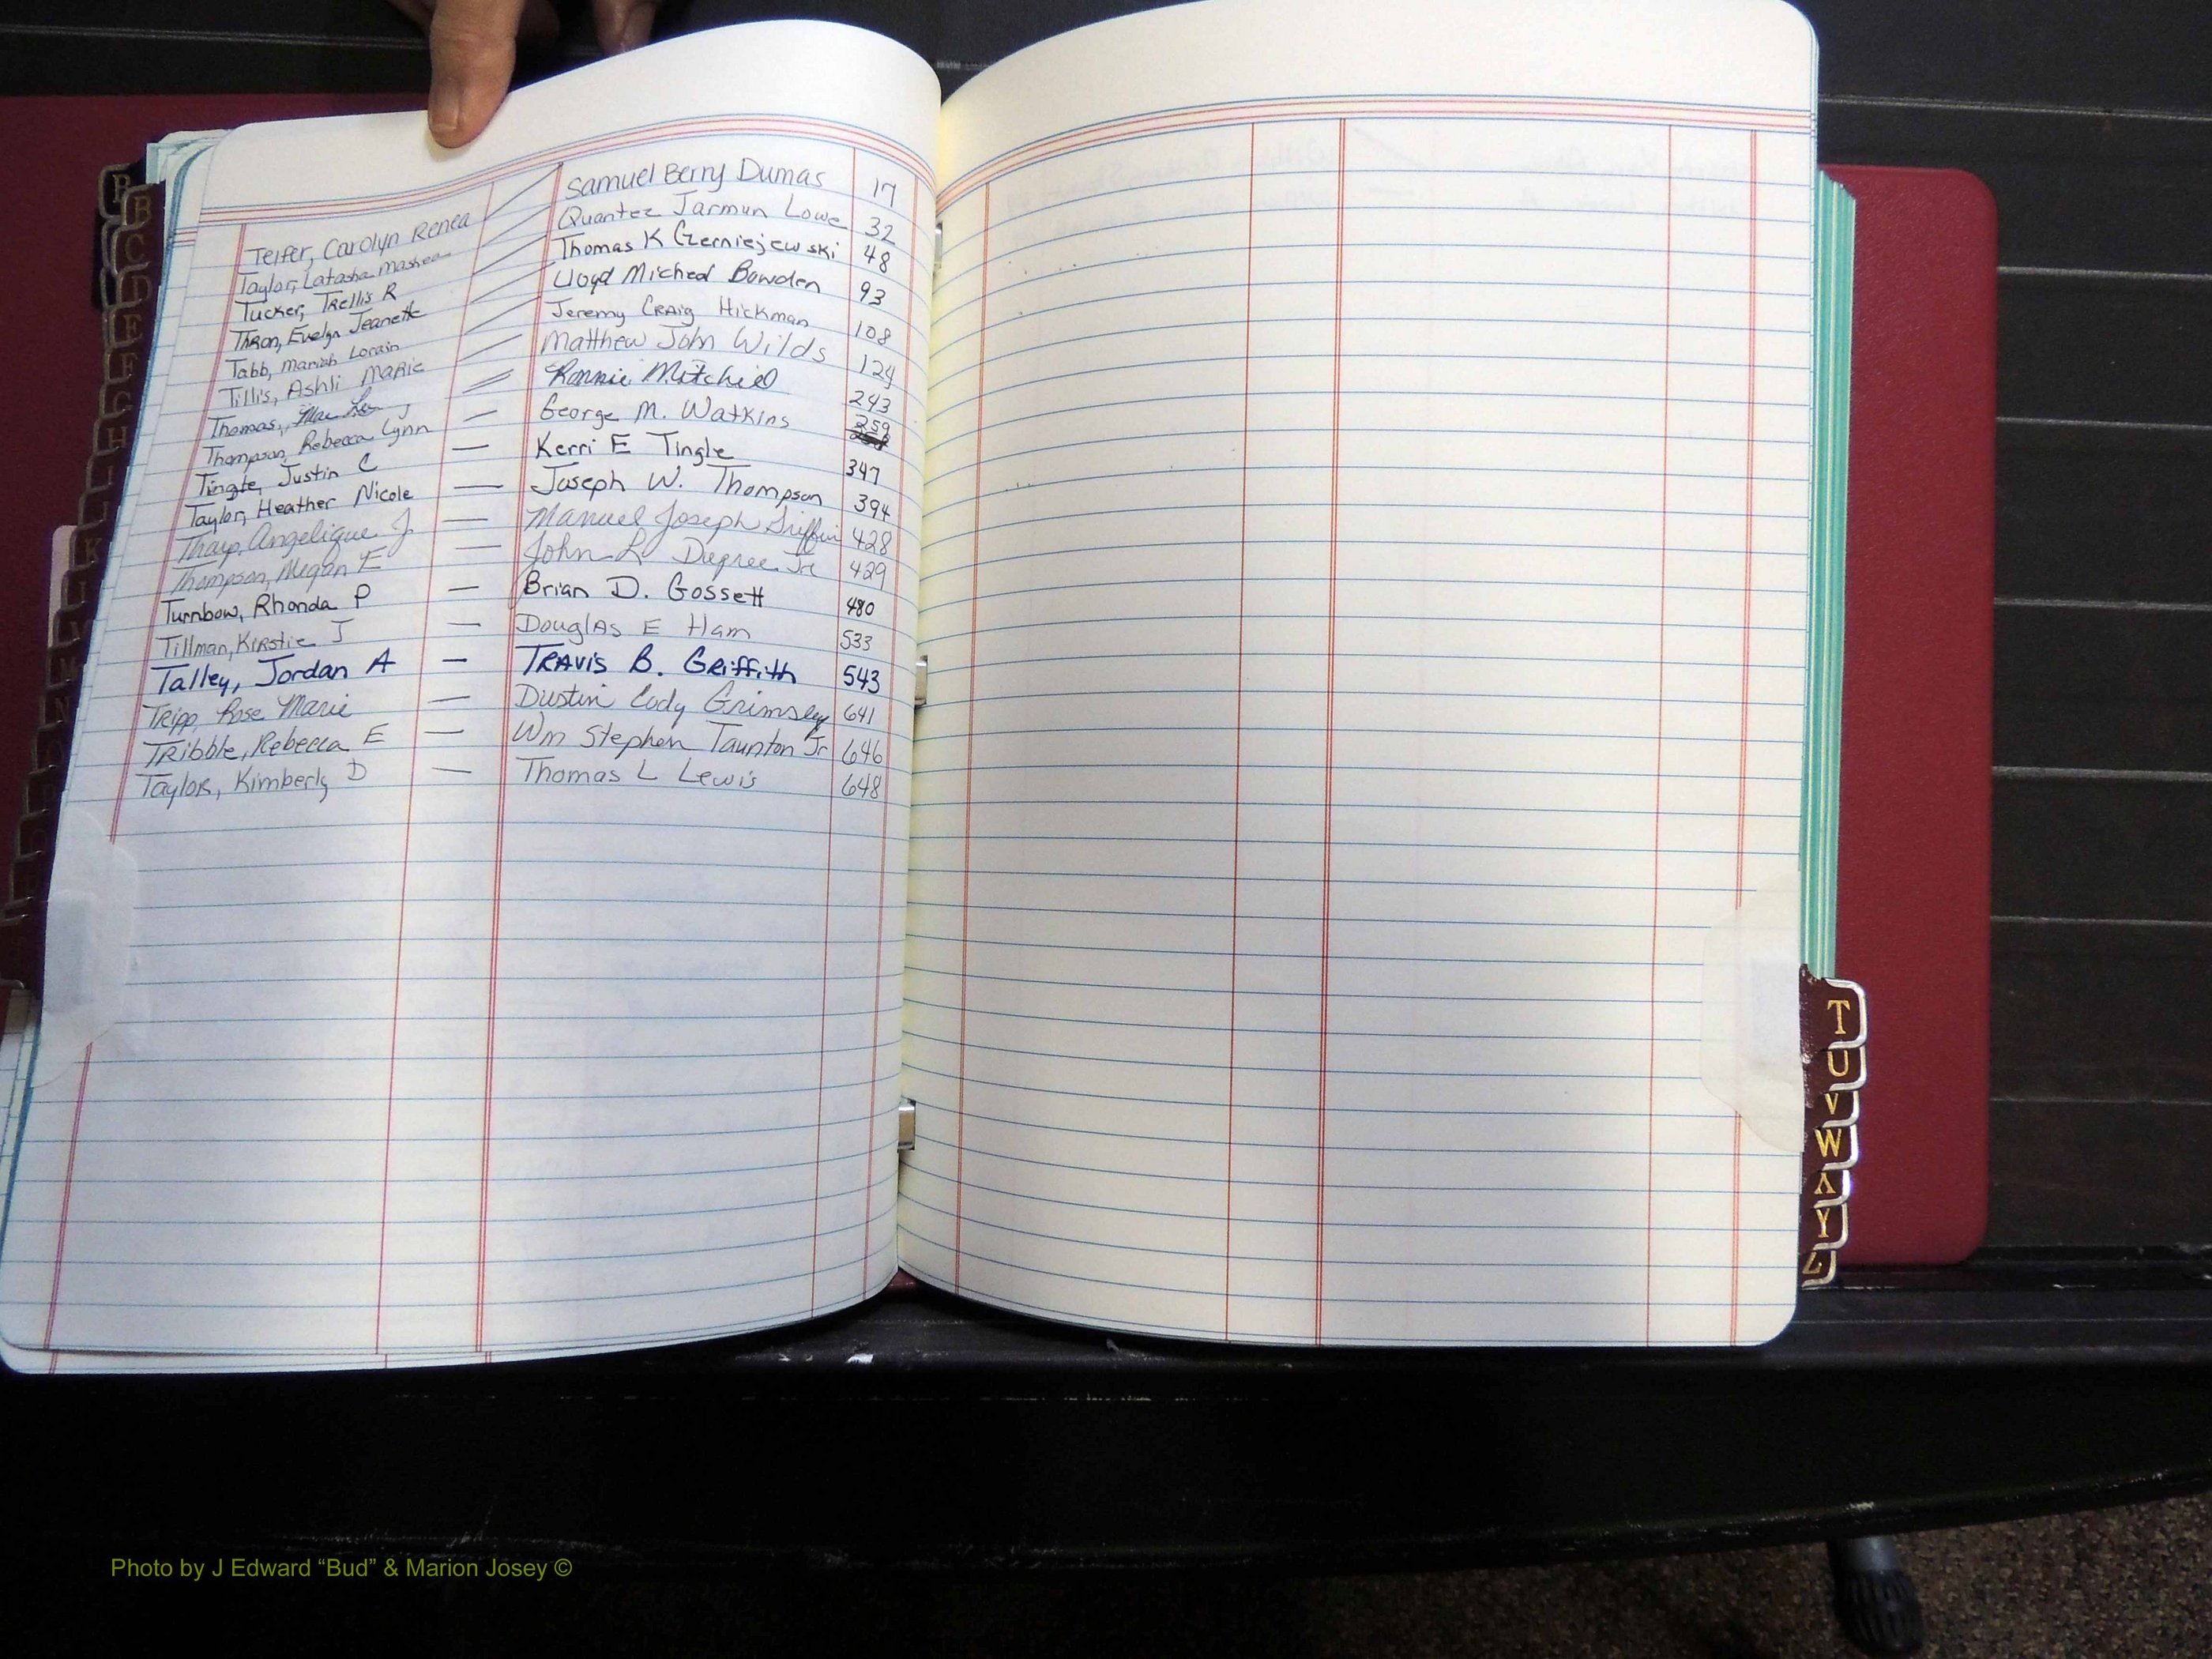 Telfer, Carolyn Renea — Samuel Berry Dumas 17
Taylor, Latasha Mashea — Quantez Jarmun Lowe 32
Tucker, Trellis R — Thomas K Czerniejewski 48
Thron, Evelyn Jeanette — Lloyd Micheal Bowden 93
Tabb, Mariah Lorain — Jeremy Craig Hickman 108
Tillis, Ashli Marie — Matthew John Wilds 124
Thomas, Mae — Ronnie Mitchell 243
Thompson, Rebecca Lynn — George M. Watkins 259
Tingle, Justin C — Kerri E Tingle 347
Taylor, Heather Nicole — Joseph W. Thompson 394
Tharp, Angelique J. — Manuel Joseph Griffin 428
Thompson, Megan E — John L Dupree Jr 429
Turnbow, Rhonda P — Brian D. Gossett 480
Tillman, Kirstie J — Douglas E Ham 533
Talley, Jordan A — Travis B. Griffith 543
Tripp, Rose Marie — Dustin Cody Grimsley 641
Tribble, Rebecca E — Wm Stephen Taunton Jr 646
Taylor, Kimberly D — Thomas L Lewis 648
B
B
C
E
F
G
H
K
M
N
T
U
V
W
X
Y
Z
Photo by J Edward “Bud” & Marion Josey ©